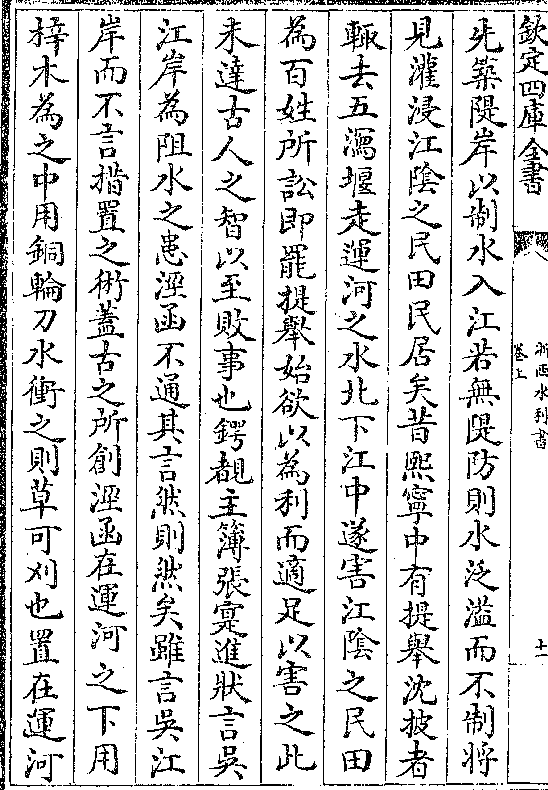 欽定四庫全書
浙西水利書
卷上
十一
先築隄岸以制水入江若無隄防則水泛溢而不制將
見灌浸江陰之民田民居矣昔熙寧中有提舉沈披者
輒去五瀉堰走運河之水北下江中遂害江陰之民田
為百姓所訟即罷提舉始欲以為利而適足以害之此
未達古人之智以至敗事也鍔覩主簿張寔進狀言吳
江岸為阻水之患涇函不通其言然則然矣雖言吳江
岸而不言措置之術蓋古之所創涇函在運河之下用
梓木為之中用銅輪刀水衝之則草可刈也置在運河